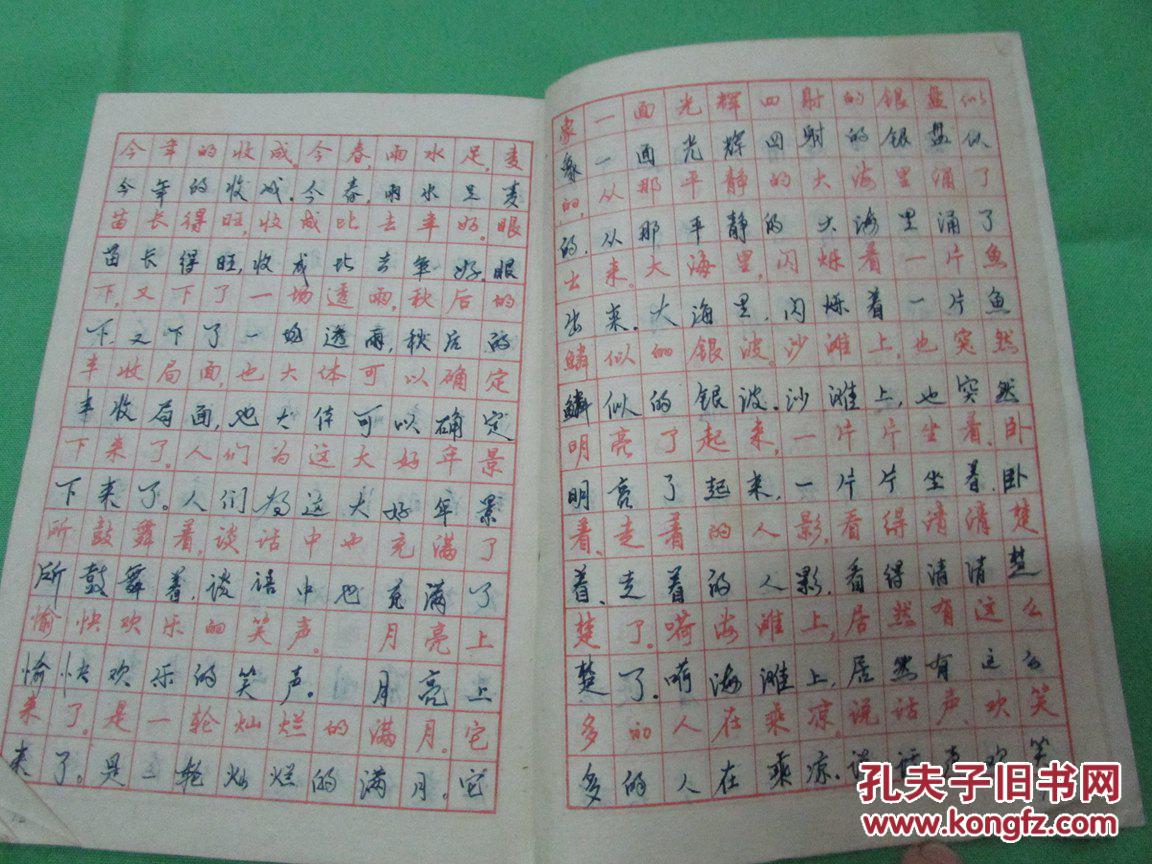 今年的收成。今春，雨水足，麦
今年的收成。今春，雨水足麦
苗长得旺，收成比去年好。眼
苗长得旺，收成比去年好。眼
下，又下了一场透雨，秋后的
下，又下了一场透雨，秋后的
丰收局面，也大体可以确定
丰收局面，也大体可以确定
下来了。人们为这大好年景
下来了。人们为这大好年景
所鼓舞着，谈话中也充满了
所鼓舞着，谈话中也充满了
愉快欢乐的笑声。月亮上
愉快欢乐的笑声。月亮上
来了。是一轮灿烂的满月。它
来了。是一轮灿烂的满月。它
象一面光辉四射的银盘似
象一面光辉四射的银盘似
的，从那平静的大海里涌了
的，从那平静的大海里涌了
出来。大海里，闪烁着一片鱼
出来。大海里，闪烁着一片鱼
鳞似的银波。沙滩上，也突然
鳞似的银波。沙滩上，也突然
明亮了起来，一片片坐着、卧
明亮了起来，一片片坐着、卧
着、走着的人影，看得清清楚
着、走着的人影，看得清清楚
楚了。嗬海滩上，居然有这么
楚了。嗬海滩上，居然有这么
多的人在乘凉。说话声、欢笑
多的人在乘凉。说话声、欢笑
孔夫子旧书网
www.kongfz.com